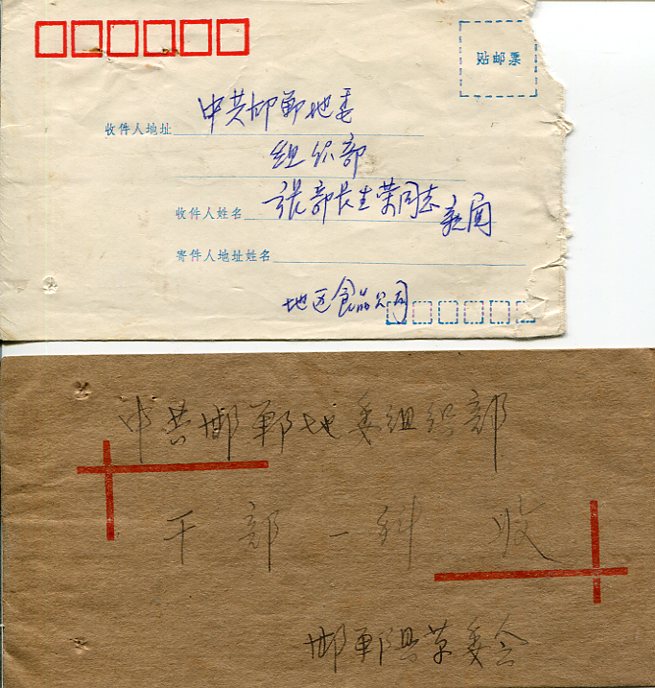 贴邮票
收件人地址 中共邯郸地委
组织部
收件人姓名 张部长生荣同志 亲阅
寄件人地址姓名
地区食品公司
中共邯郸地委组织部
干部一科 收
邯郸县革委会